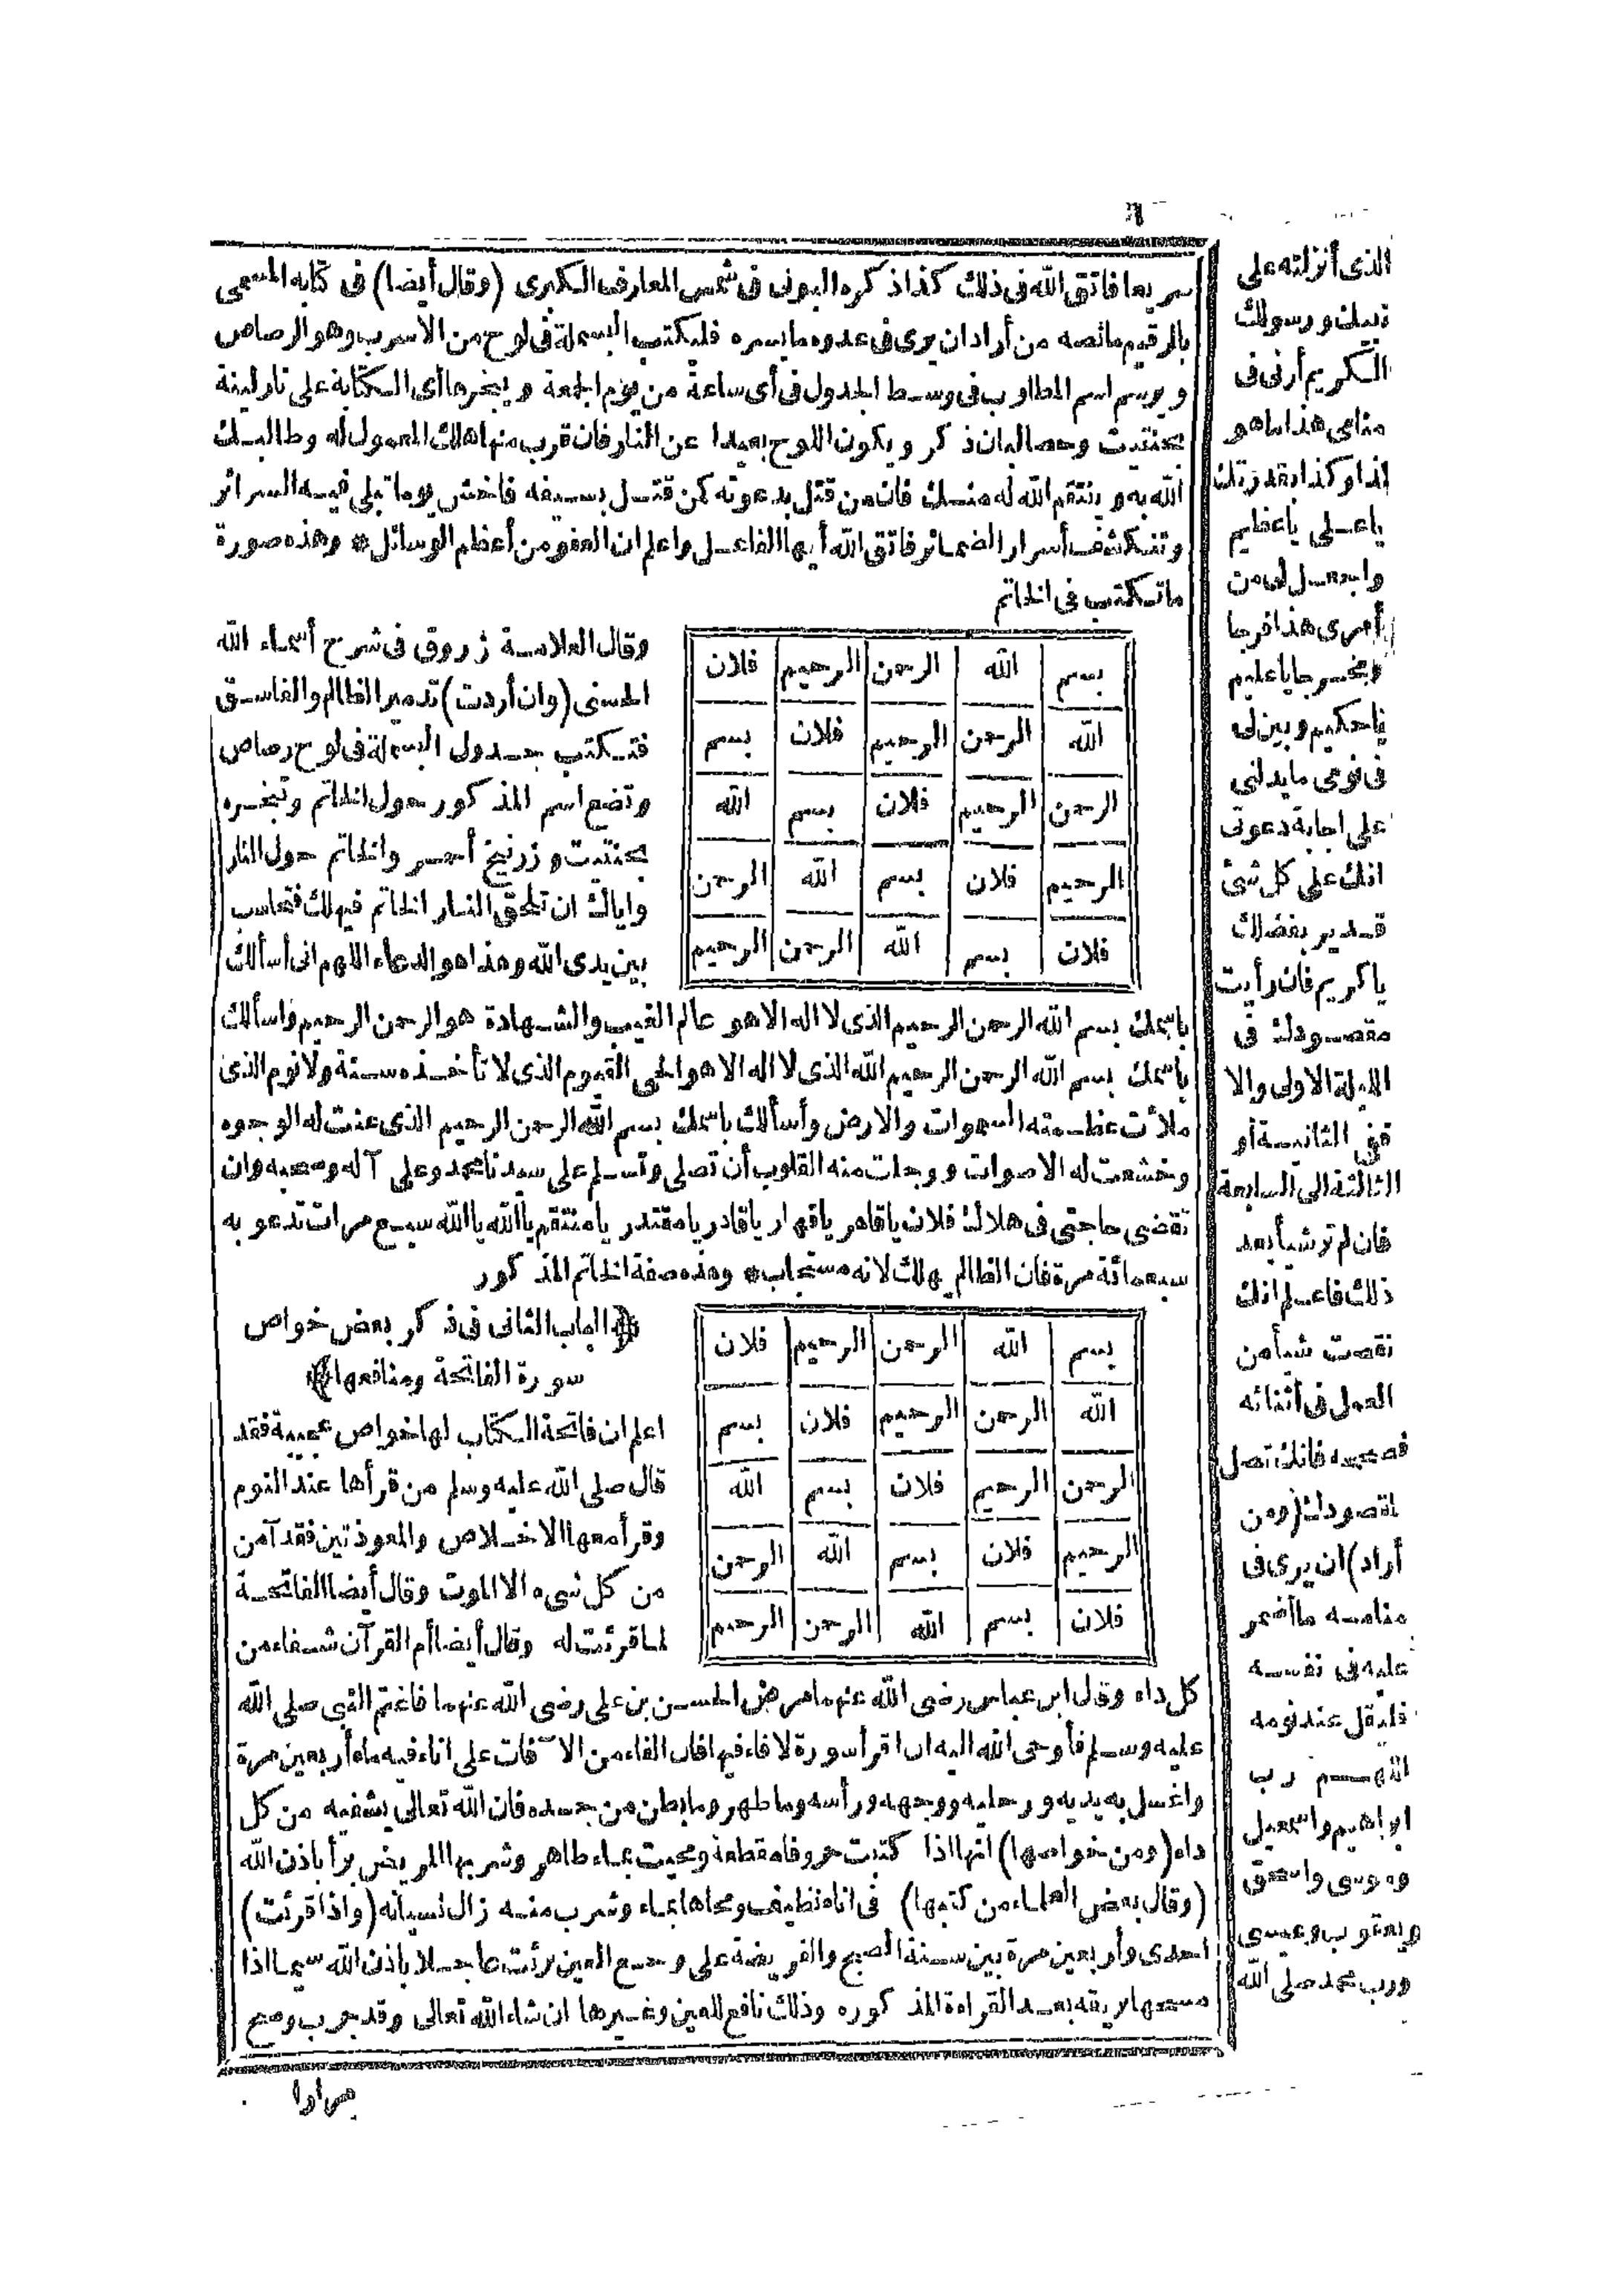 ٦
سريعا فاتق الله في ذلك كذا ذكره البوني في شمس المعارف الكبرى (وقال أيضا) في كتابه المسمى
بالرقيم ما نصه من أراد ان يرى في عدوه ما يسره فليكتب البسملة في لوح من الاسرب وهو الرصاص
ويرسم اسم المطلوب في وسط الجدول في أي ساعة من يوم الجمعة ويبخرها أي الكتابة على نار لينة
بحنتيت وحصالبان ذكر ويكون اللوح بعيدا عن النار فان قرب منها هلك المعمول له وطالبك
الله به وينتقم الله له منك فان من قتل بدعوته كمن قتل بسيفه فاخش يوما تبلى فيه السرائر
وتنكشف أسرار الضمائر فاتق الله أيها الفاعل واعلم ان العفو من أعظم الوسائل * وهذه صورة
ما تكتب في الخاتم
بسم الله الرحمن الرحيم فلان
الله الرحمن الرحيم فلان بسم
الرحمن الرحيم فلان بسم الله
الرحيم فلان بسم الله الرحمن
فلان بسم الله الرحمن الرحيم
وقال العلامة زروق في شرح أسماء الله
الحسنى (وان أردت) تدمير الظالم والفاسق
فتكتب جدول البسملة في لوح رصاص
وتضع اسم المذكور حول الخاتم وتبخره
بحنتيت وزرنيخ أحمر والخاتم حول النار
واياك ان تلحق النار الخاتم فيهلك فتحاسب
بين يدي الله وهذا هو الدعاء اللهم اني أسألك
باسمك بسم الله الرحمن الرحيم الذي لا اله الا هو عالم الغيب والشهادة هو الرحمن الرحيم واسألك
باسمك بسم الله الرحمن الرحيم الله الذي لا اله الا هو الحي القيوم الذي لا تأخذه سنة ولا نوم الذي
ملأت عظمته السموات والارض وأسألك باسمك بسم الله الرحمن الرحيم الذي عنت له الوجوه
وخشعت له الاصوات ووجلت منه القلوب أن تصلي وتسلم على سيدنا محمد وعلى آله وصحبه وان
تقضي حاجتي في هلاك فلان يا قاهر يا قهار يا قادر يا مقتدر يا منتقم يا الله يا الله سبع مرات تدعو به
سبعمائة مرة فان الظالم يهلك لانه مستجاب * وهذه صفة الخاتم المذكور
بسم الله الرحمن الرحيم فلان
الله الرحمن الرحيم فلان بسم
الرحمن الرحيم فلان بسم الله
الرحيم فلان بسم الله الرحمن
فلان بسم الله الرحمن الرحيم
﴿الباب الثاني في ذكر بعض خواص
سورة الفاتحة ومنافعها﴾
اعلم ان فاتحة الكتاب لها خواص عجيبة فقد
قال صلى الله عليه وسلم من قرأها عند النوم
وقرأ معها الاخلاص والمعوذتين فقد آمن
من كل شيء الا الموت وقال أيضا الفاتحة
لما قرئت له وقال أيضا أم القرآن شفاء من
كل داء وقال ابن عباس رضي الله عنهما مرض الحسن بن علي رضي الله عنهما فاغتم النبي صلى الله
عليه وسلم فأوحى الله اليه ان اقرأ سورة لا فاء فيها فان الفاء من الآفات على اناء فيه ماء أربعين مرة
واغسل به يديه ورجليه ووجهه ورأسه وما ظهر وما بطن من جسده فان الله تعالى يشفيه من كل
داء (ومن خواصها) انها اذا كتبت حروفا مقطعة ومحيت بماء طاهر وشربها المريض برأ باذن الله
(وقال بعض العلماء من كتبها) في اناء نظيف ومحاها بماء وشرب منه زال نسيانه (واذا قرئت)
احدى وأربعين مرة بين سنة الصبح والفريضة على وجع العين برئت عاجلا باذن الله سيما اذا
مسحها بريقه بعد القراءة المذكوره وذلك نافع للعين وغيرها ان شاء الله تعالى وقد جرب وصح
مرارا
الذي أنزلته على
نبيك ورسولك
الكريم أرني في
منامي هذا ما هو
كذا وكذا بقدرتك
يا علي يا عظيم
واجعل لي من
أمري هذا فرجا
ومخرجا يا عليم
يا حكيم وبين لي
في نومي ما يدلني
على اجابة دعوتي
انك على كل شئ
قدير بفضلك
يا كريم فان رأيت
مقصودك في
الليلة الاولى والا
ففي الثانية أو
الثالثة الى السابعة
فان لم تر شيأ بعد
ذلك فاعلم انك
نقصت شيأ من
العمل في أثنائه
فصححه فانك تصل
لمقصودك (ومن
أراد) ان يرى في
منامه ما أضمر
عليه في نفسه
فليقل عند نومه
اللهم رب
ابراهيم واسمعيل
وموسى واسحق
ويعقوب وعيسى
ورب محمد صلى الله